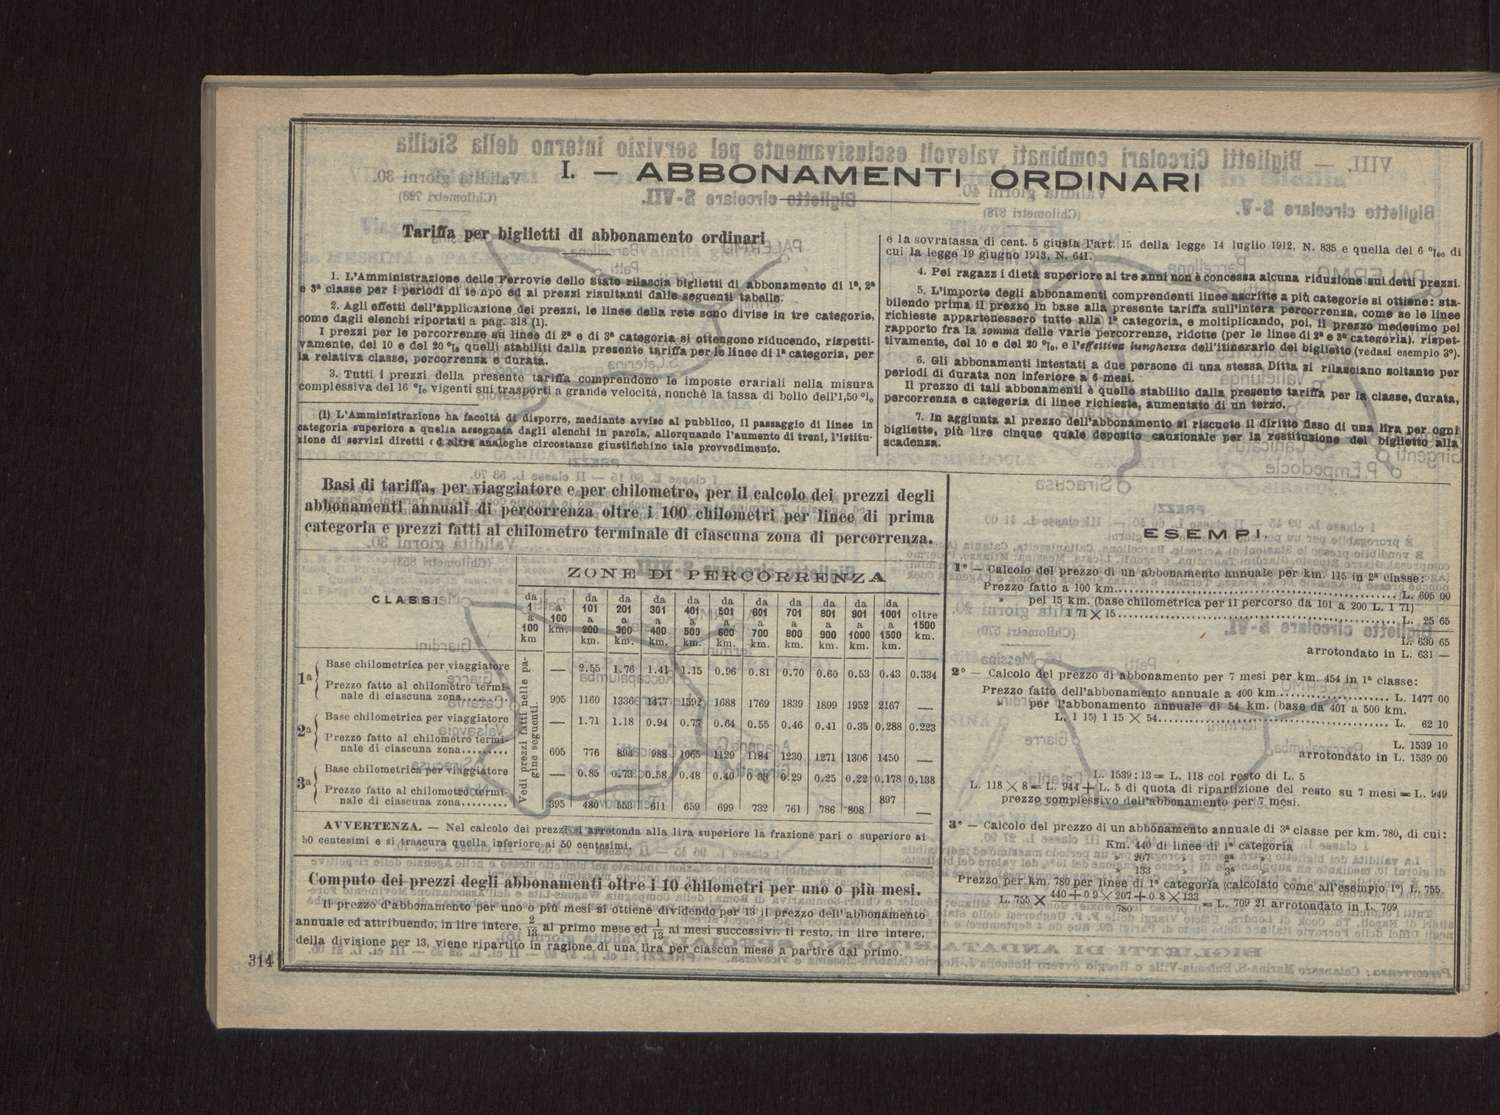 I. — ABBONAMENTI ORDINARI
Tariffa per biglietti di abbonamento ordinari
1. L'Amministrazione delle Ferrovie dello Stato rilascia biglietti di abbonamento di 1ª, 2ª
e 3ª classe per i periodi di tempo ed ai prezzi risultanti dalle seguenti tabelle.
2. Agli effetti dell'applicazione dei prezzi, le linee della rete sono divise in tre categorie,
come dagli elenchi riportati a pag. 318 (1).
I prezzi per le percorrenze su linee di 2ª e di 3ª categoria si ottengono riducendo, rispetti-
vamente, del 10 e del 20 % quelli stabiliti dalla presente tariffa per le linee di 1ª categoria, per
la relativa classe, percorrenza e durata.
3. Tutti i prezzi della presente tariffa comprendono le imposte erariali nella misura
complessiva del 16 % vigenti sui trasporti a grande velocità, nonchè la tassa di bollo dell'1,50 %
(1) L'Amministrazione ha facoltà di disporre, mediante avviso al pubblico, il passaggio di linee in
categoria superiore a quella assegnata dagli elenchi in parola, allorquando l'aumento di treni, l'istitu-
zione di servizi diretti ed altre analoghe circostanze giustifichino tale provvedimento.
e la sovratassa di cent. 5 giusta l'art. 15 della legge 14 luglio 1912, N. 835 e quella del 6 ‰ di
cui la legge 19 giugno 1913, N. 641.
4. Pei ragazzi di età superiore ai tre anni non è concessa alcuna riduzione sui detti prezzi.
5. L'importo degli abbonamenti comprendenti linee ascritte a più categorie si ottiene: sta-
bilendo prima il prezzo in base alla presente tariffa sull'intera percorrenza, come se le linee
richieste appartenessero tutte alla 1ª categoria, e moltiplicando, poi, il prezzo medesimo pel
rapporto fra la somma delle varie percorrenze, ridotte (per le linee di 2ª e 3ª categoria), rispet-
tivamente, del 10 e del 20 %, e l'effettiva lunghezza dell'itinerario del biglietto (vedasi esempio 3º).
6. Gli abbonamenti intestati a due persone di una stessa Ditta si rilasciano soltanto per
periodi di durata non inferiore a 6 mesi.
Il prezzo di tali abbonamenti è quello stabilito dalla presente tariffa per la classe, durata,
percorrenza e categoria di linee richieste, aumentato di un terzo.
7. In aggiunta al prezzo dell'abbonamento si riscuote il diritto fisso di una lira per ogni
biglietto, più lire cinque quale deposito cauzionale per la restituzione del biglietto alla
scadenza.
Basi di tariffa, per viaggiatore e per chilometro, per il calcolo dei prezzi degli
abbonamenti annuali di percorrenza oltre i 100 chilometri per linee di prima
categoria e prezzi fatti al chilometro terminale di ciascuna zona di percorrenza.
CLASSI
ZONE DI PERCORRENZA
da 1 a 100 km | a 100 km. | da 101 a 200 km. | da 201 a 300 km. | da 301 a 400 km. | da 401 a 500 km. | da 501 a 600 km. | da 601 a 700 km. | da 701 a 800 km. | da 801 a 900 km. | da 901 a 1000 km. | da 1001 a 1500 km. | oltre 1500 km.
Vedi prezzi fatti nelle pa-
gine seguenti.
1ª Base chilometrica per viaggiatore — 2.55 1.76 1.41 1.15 0.96 0.81 0.70 0.60 0.53 0.43 0.334
Prezzo fatto al chilometro termi-
nale di ciascuna zona 905 1160 1336 1477 1592 1688 1769 1839 1899 1952 2167 —
2ª Base chilometrica per viaggiatore — 1.71 1.18 0.94 0.77 0.64 0.55 0.46 0.41 0.35 0,288 0.223
Prezzo fatto al chilometro termi-
nale di ciascuna zona 605 776 894 988 1065 1129 1184 1230 1271 1306 1450 —
3ª Base chilometrica per viaggiatore — 0.85 0.73 0.58 0.48 0.40 0.33 0.29 0.25 0.22 0,178 0,138
Prezzo fatto al chilometro termi-
nale di ciascuna zona 395 480 553 611 659 699 732 761 786 808 897 —
AVVERTENZA. — Nel calcolo dei prezzi si arrotonda alla lira superiore la frazione pari o superiore ai
50 centesimi e si trascura quella inferiore ai 50 centesimi.
Computo dei prezzi degli abbonamenti oltre i 10 chilometri per uno o più mesi.
Il prezzo d'abbonamento per uno o più mesi si ottiene dividendo per 13 il prezzo dell'abbonamento
annuale ed attribuendo, in lire intere, 2/13 al primo mese ed 1/13 ai mesi successivi. Il resto, in lire intere,
della divisione per 13, viene ripartito in ragione di una lira per ciascun mese a partire dal primo.
ESEMPI.
1º — Calcolo del prezzo di un abbonamento annuale per km. 115 in 2ª classe:
Prezzo fatto a 100 km. L. 605 00
» pei 15 km. (base chilometrica per il percorso da 101 a 200 L. 1 71)
1 71 × 15 L. 25 65
L. 630 65
arrotondato in L. 631 —
2º — Calcolo del prezzo di abbonamento per 7 mesi per km. 454 in 1ª classe:
Prezzo fatto dell'abbonamento annuale a 400 km. L. 1477 00
per l'abbonamento annuale di 54 km. (base da 401 a 500 km.
L. 1 15) 1 15 × 54 L. 62 10
L. 1539 10
arrotondato in L. 1539 00
L. 1539 : 13 = L. 118 col resto di L. 5
L. 118 × 8 = L. 944 + L. 5 di quota di ripartizione del resto su 7 mesi = L. 949
prezzo complessivo dell'abbonamento per 7 mesi.
3º — Calcolo del prezzo di un abbonamento annuale di 3ª classe per km. 780, di cui:
Km. 440 di linee di 1ª categoria
» 207 » 2ª »
» 133 » 3ª »
Prezzo per km. 780 per linee di 1ª categoria (calcolato come all'esempio 1º) L. 755
L. 755 × 440 + 0 9 × 207 + 0 8 × 133 / 780 = L. 709 21 arrotondato in L. 709.
314